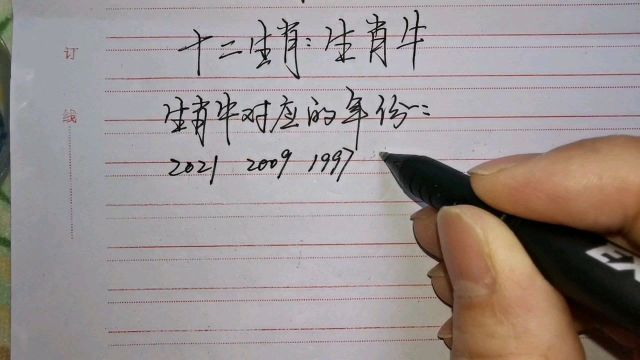 十二生肖：生肖牛
生肖牛对应的年份：
2021 2009 1997
订
线